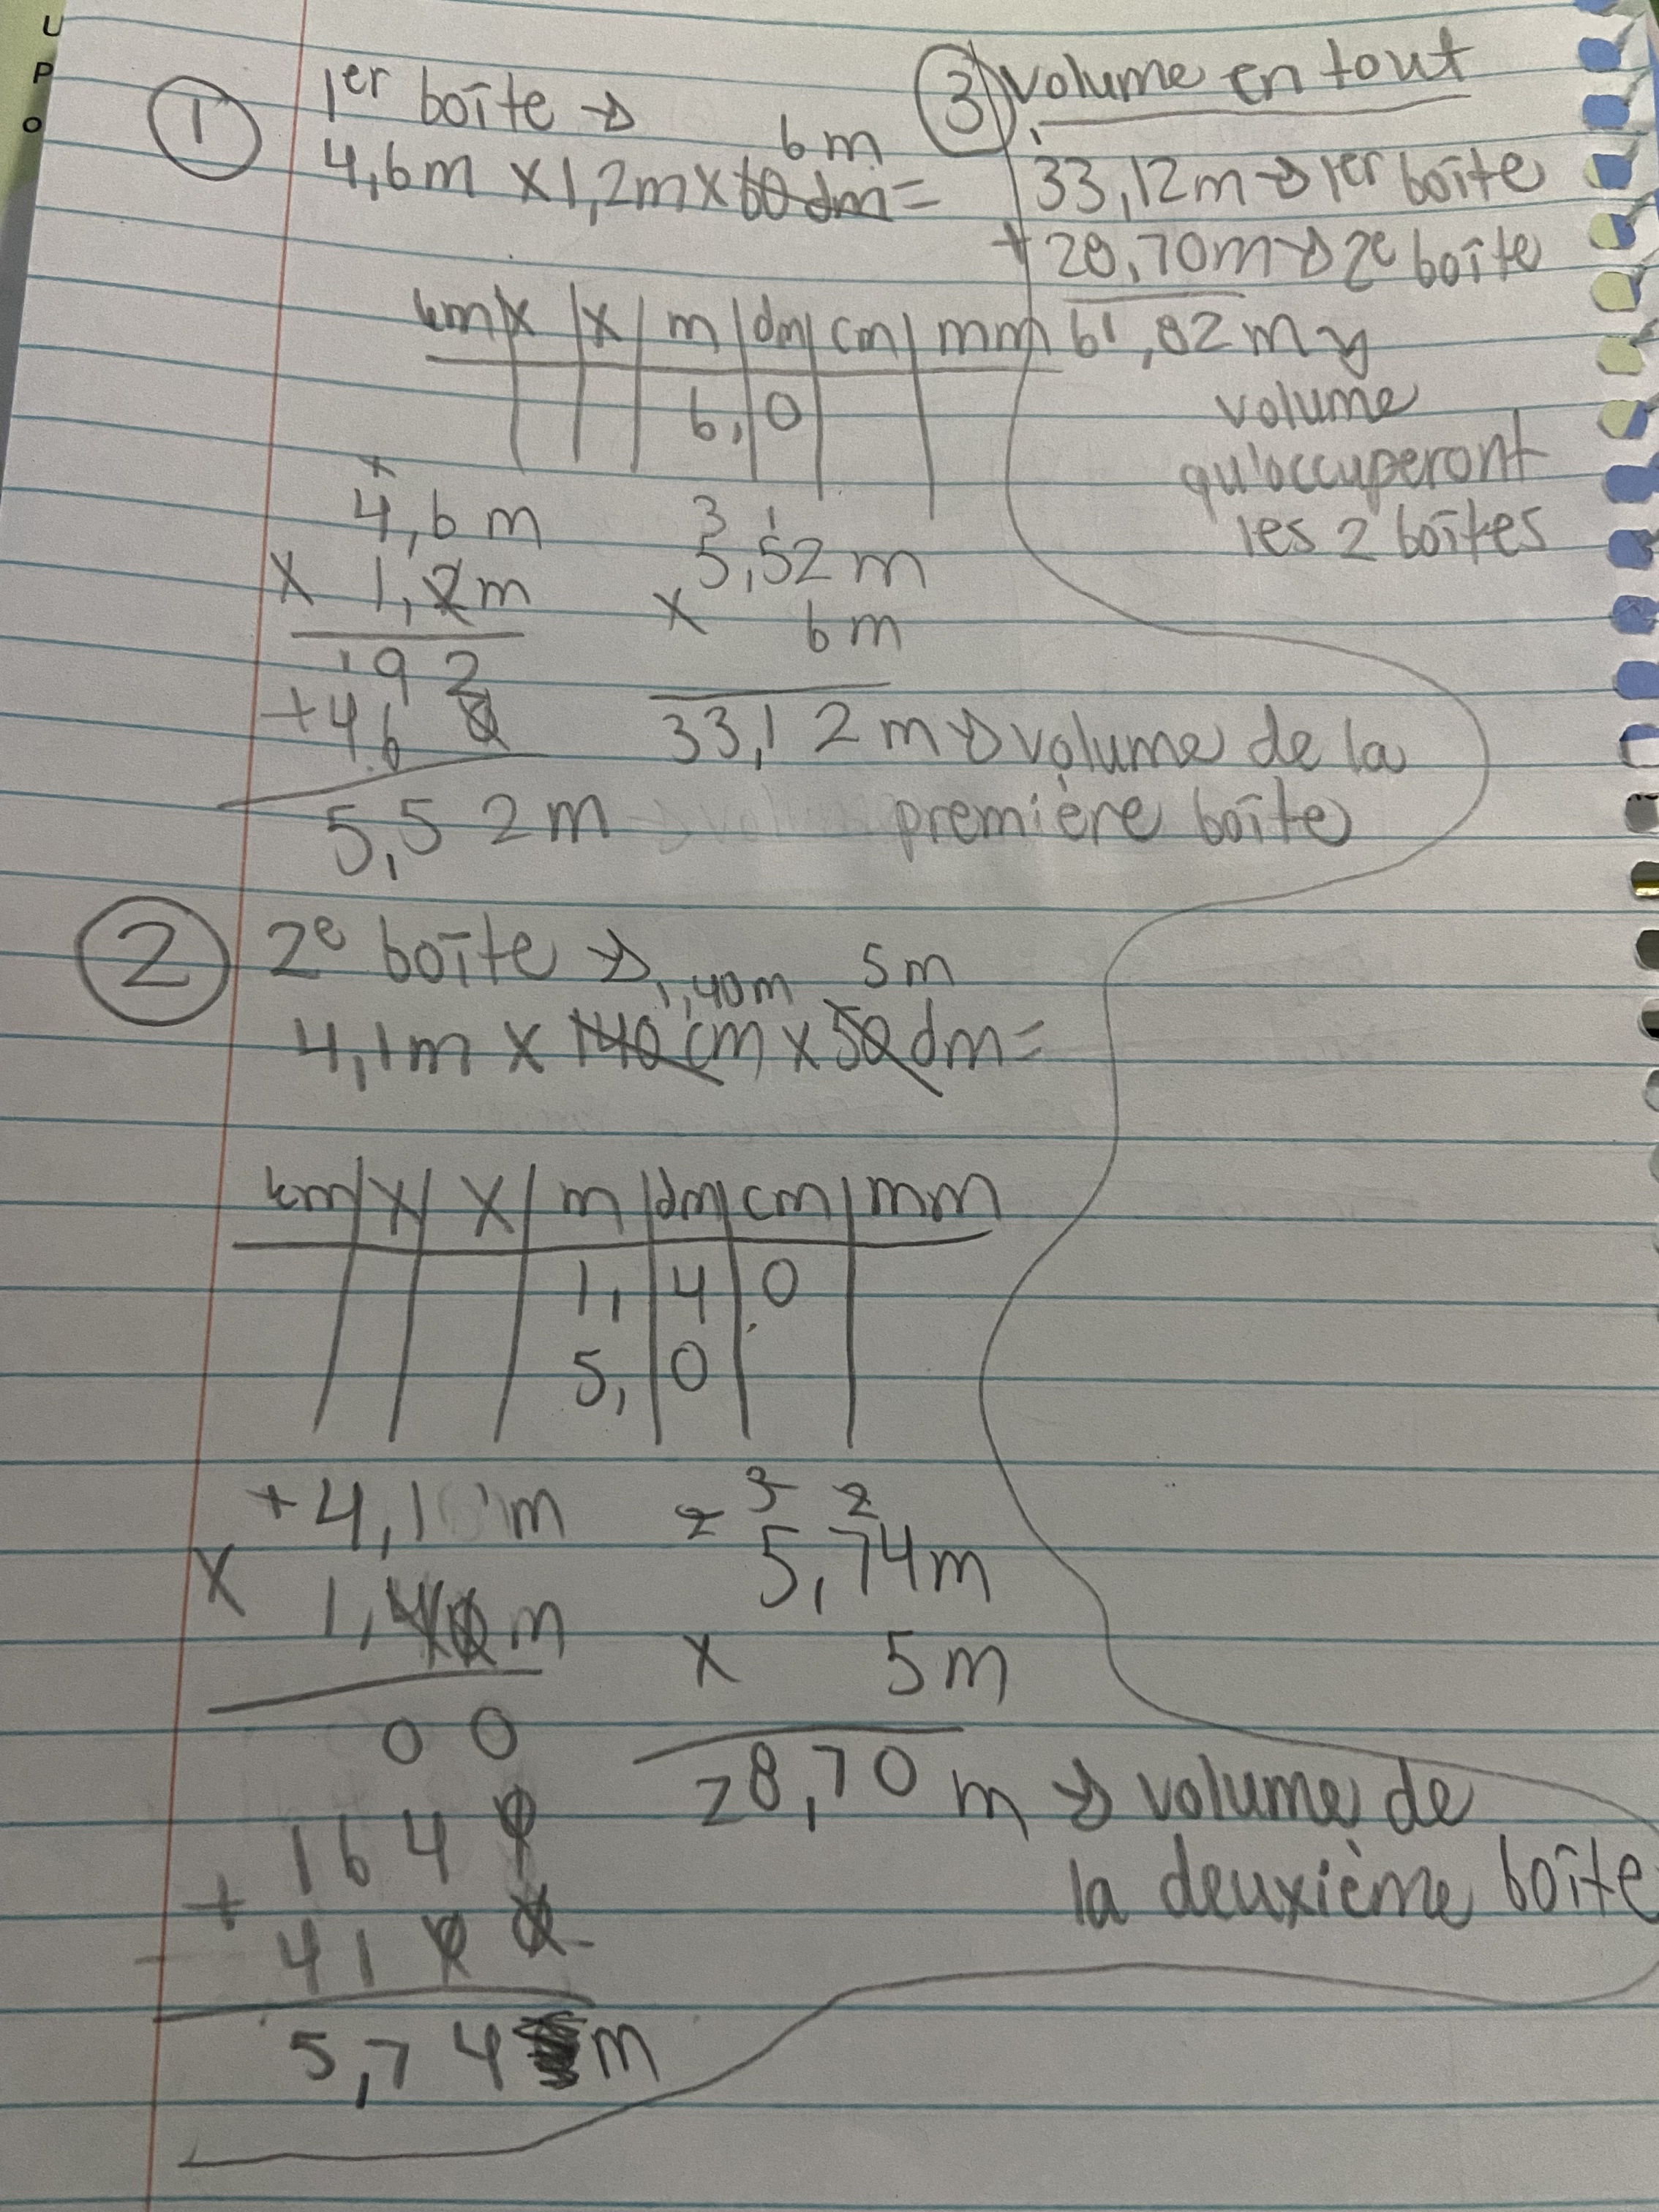 U
P
O
① 1er boîte →
6m
4,6m x 1,2m x 60 dm =
km | x | x | m | dm | cm | mm
6, 0
4,6 m
x 1,2m
192
+46 0
5,52m
3 1
5,52m
x 6m
33,12m → volume de la
première boîte
② 2e boîte →
1,40m 5m
4,1m x 140 cm x 50 dm =
km | x | x | m | dm | cm | mm
1, 4 0
5, 0
+4,1 m
x 1,40m
00
1640
+
4100
5,74 m
2 3 2
5,74m
x 5m
28,70 m → volume de
la deuxième boîte
③ volume en tout
33,12m → 1er boîte
+ 28,70m → 2e boîte
61,82m →
volume
qu'occuperont
les 2 boîtes